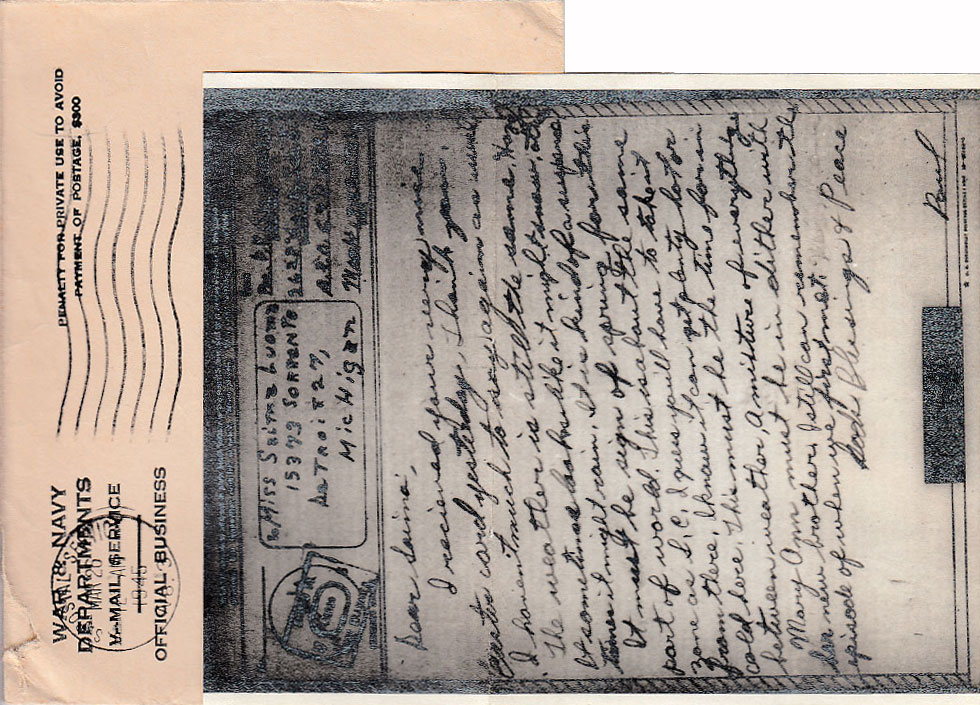 WAR & NAVY
DEPARTMENTS
V-MAIL SERVICE
OFFICIAL BUSINESS
1945
PENALTY FOR PRIVATE USE TO AVOID
PAYMENT OF POSTAGE, $300
To Miss Saima Luoma
15373 Sorrento
Detroit 27,
Michigan
Dear Saima;
I recieved your very nice
Easter card yesterday, I thank you.
I haven't much to say again as usual,
The weather is still the same,
It sometimes looks like it might snow,
times it might rain, It is kind of a suspense
It must be sign of spring for this
part of world. This is about the same
zone as S.C. I guess you'll have to take it
from there. I know it can get plenty hot or
cold here. This must be the time for in
between weather. A mixture of everything
Mary Ann must be in dither with
her new brother, I still can remember the
episode of when ye first met.
God's Blessings & Peace
Paul